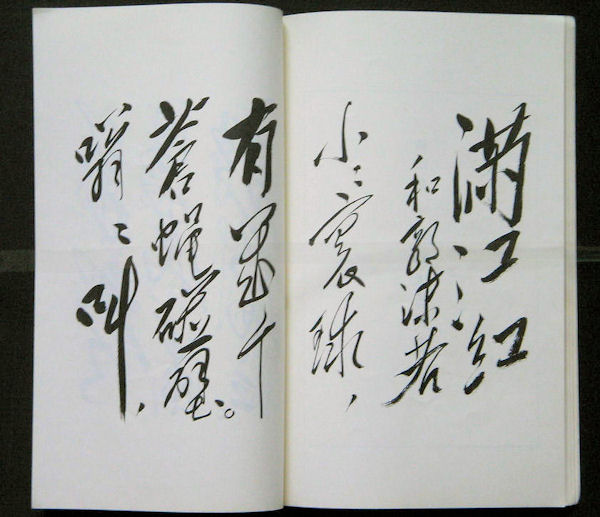 满江红
和郭沫若
小〻寰球，
有幾个
蒼蝇碰壁。
嗡〻叫，